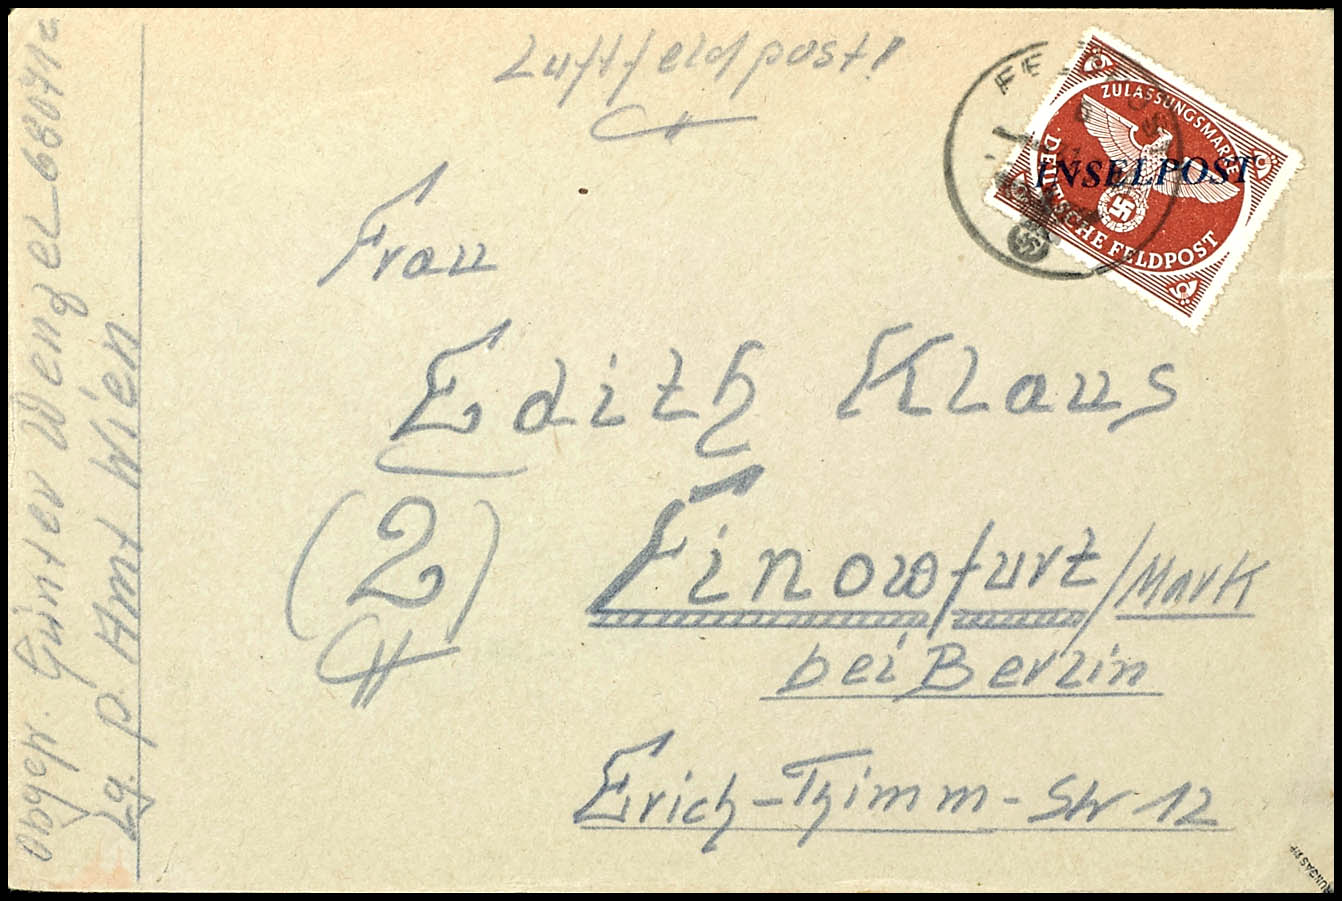 Luftfeldpost!
FELDPOST
ZULASSUNGSMARKE
INSELPOST
DEUTSCHE FELDPOST
Frau
Edith Klaus
(2) Finowfurt/Mark
bei Berlin
Erich-Thimm-Str 12
Obgefr. Günter Wengel 68041a
Lg. p. Amt Wien